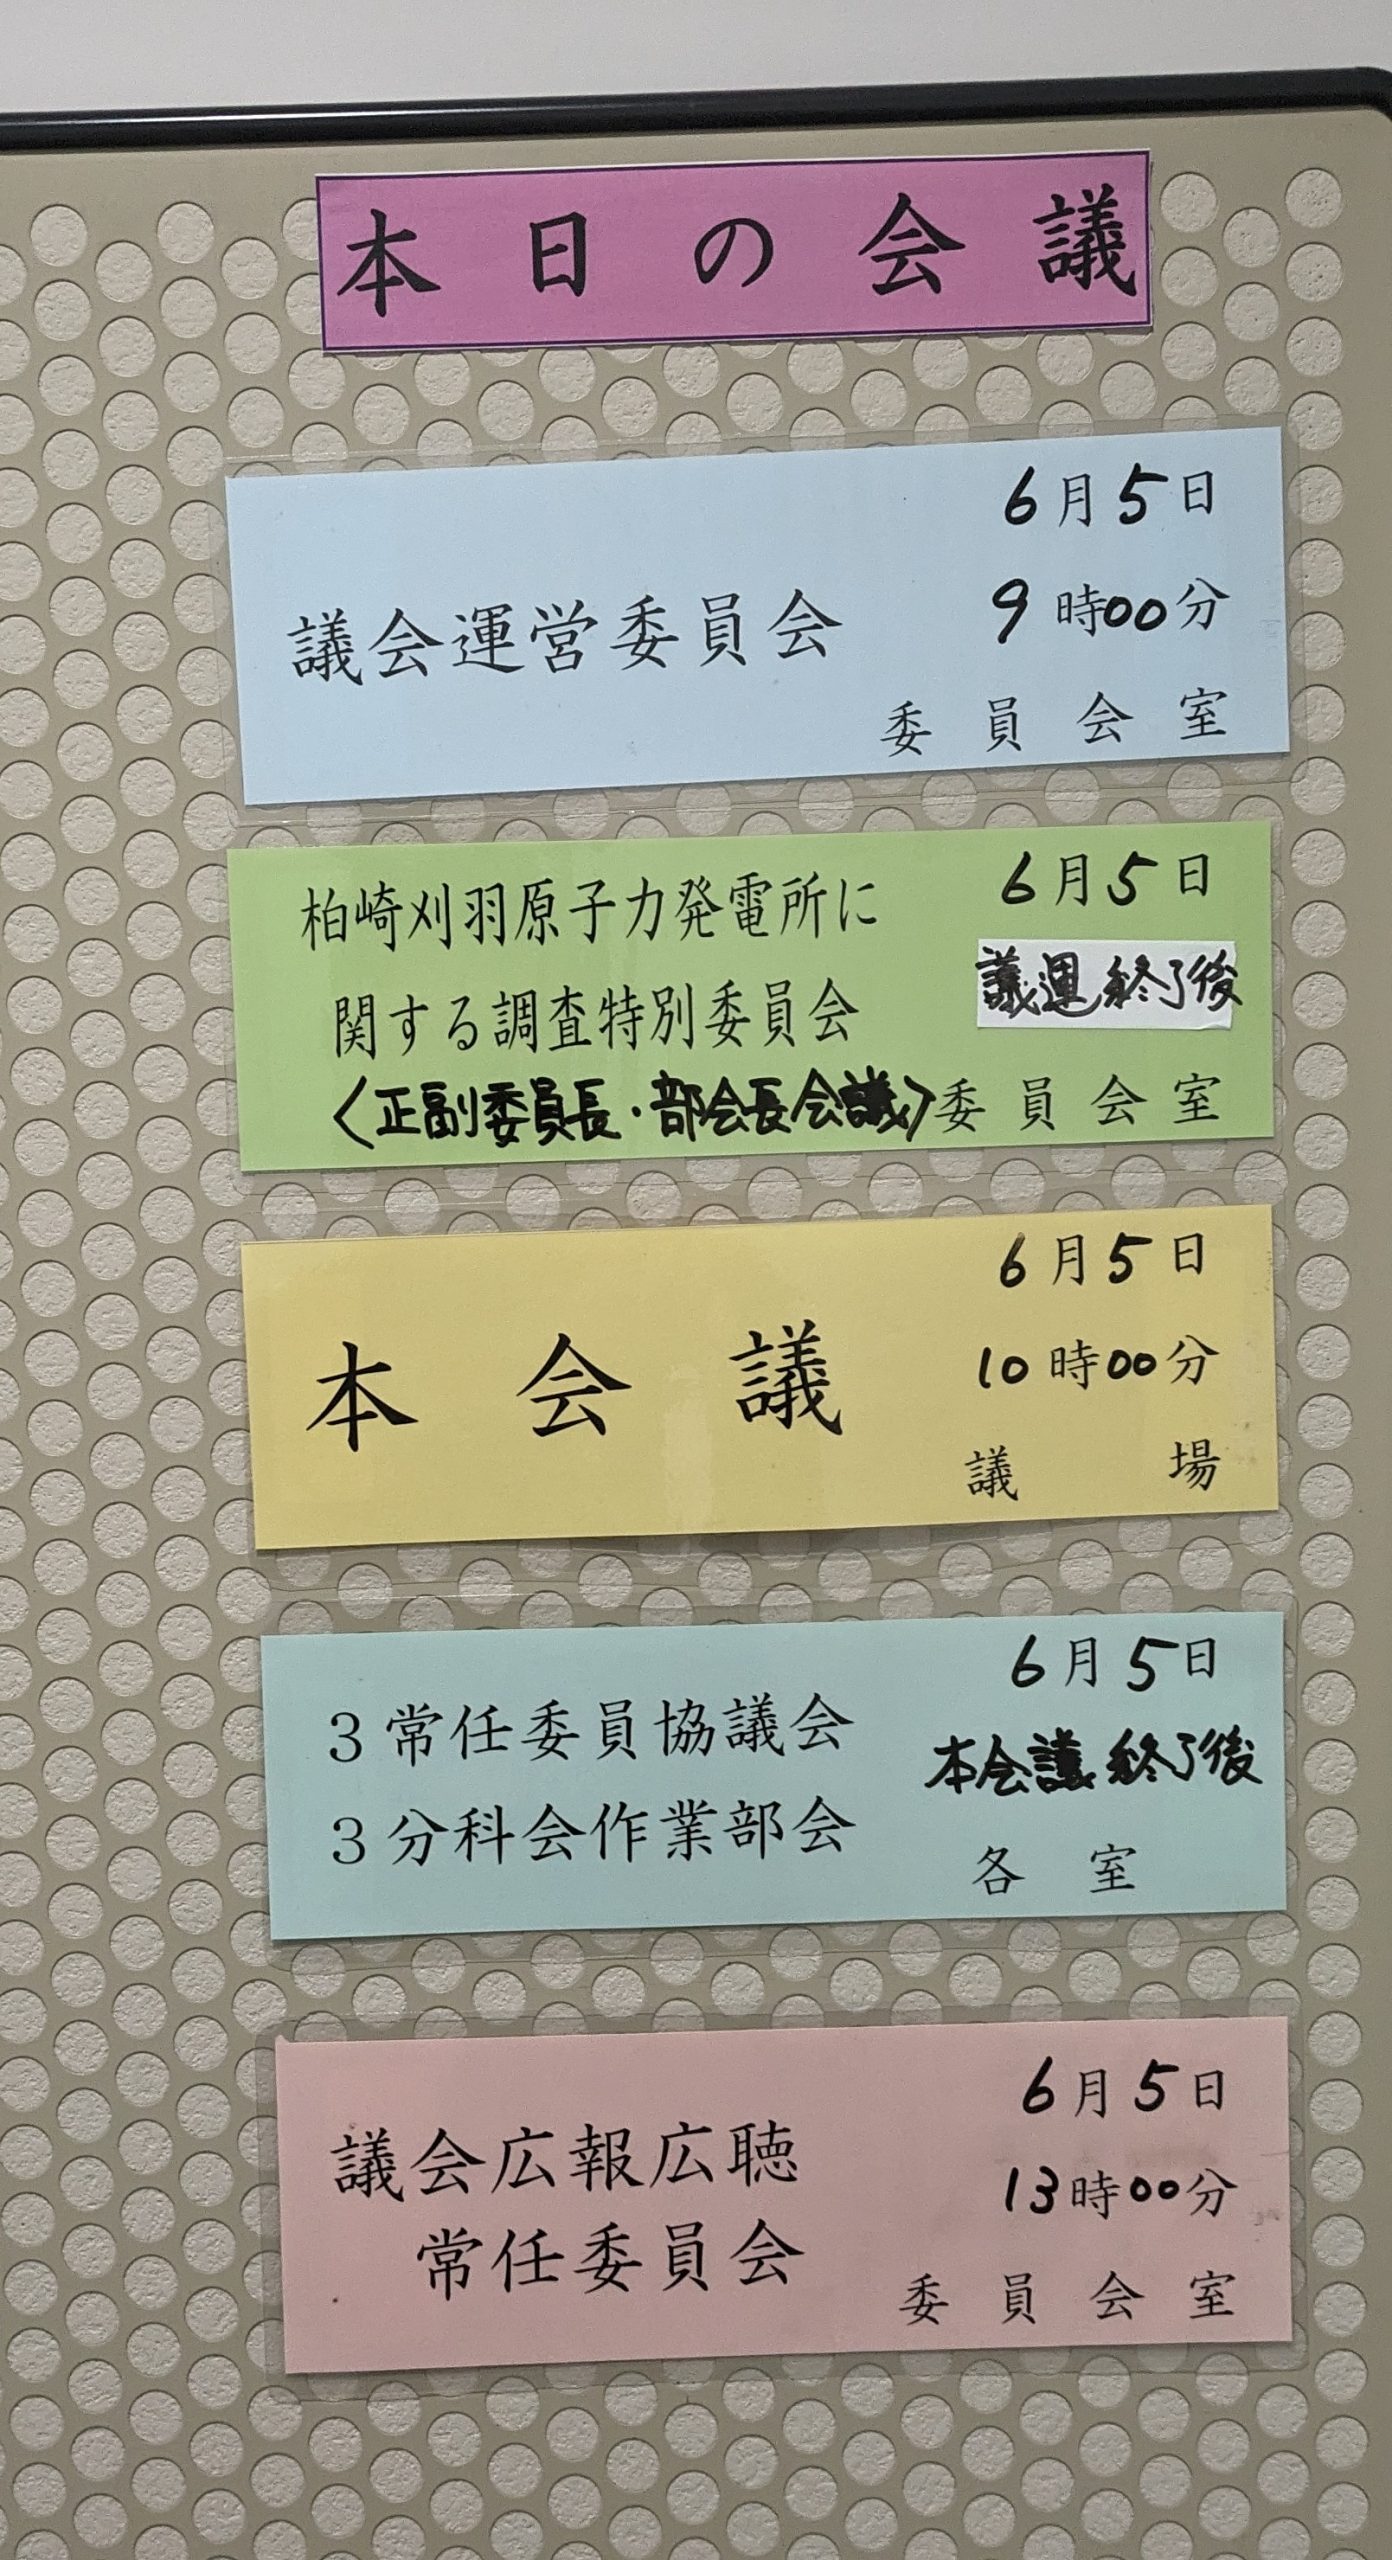 本日の会議
6月5日
議会運営委員会
9時00分
委員会室
柏崎刈羽原子力発電所に
関する調査特別委員会
〈正副委員長・部会長会議〉
6月5日
議運終了後
委員会室
本会議
6月5日
10時00分
議場
3常任委員協議会
3分科会作業部会
6月5日
本会議終了後
各室
議会広報広聴
常任委員会
6月5日
13時00分
委員会室